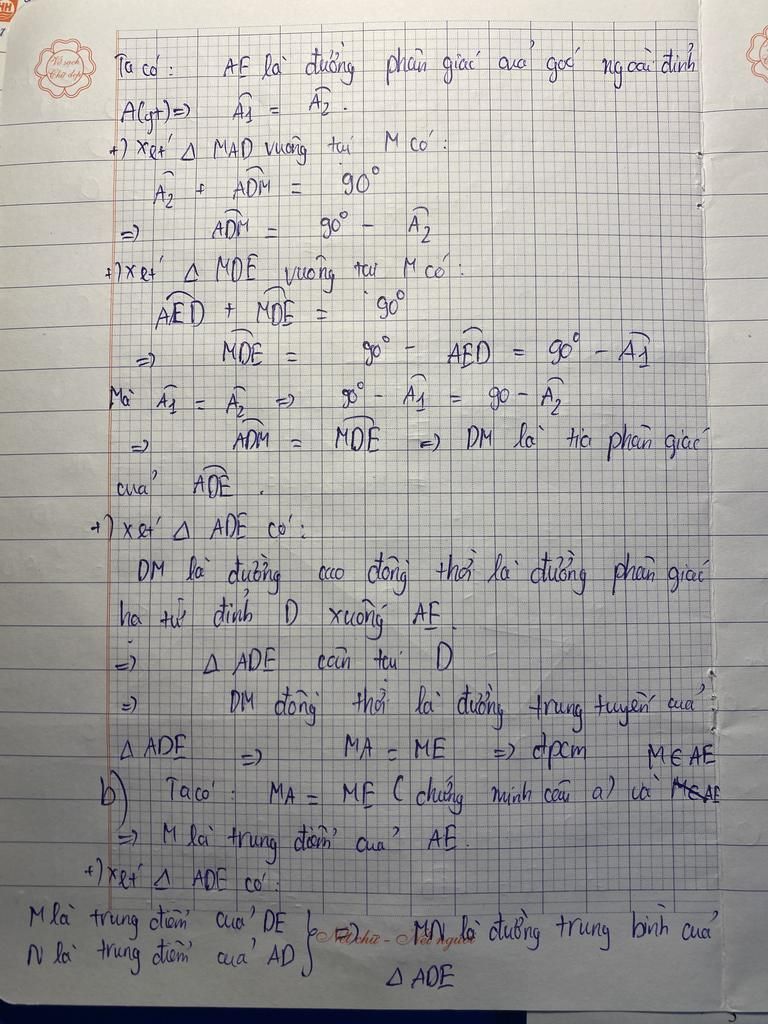 Vở sạch
Chữ đẹp
Ta có: AE là đường phân giác của góc ngoài đỉnh
A(gt) => Â1 = Â2.
+) xét Δ MAD vuông tại M có:
Â2 + ADM = 90°
=> ADM = 90° - Â2
+) xét Δ MDE vuông tại M có:
AED + MDE = 90°
=> MDE = 90° - AED = 90° - Â1
Mà Â1 = Â2 => 90° - Â1 = 90 - Â2
=> ADM = MDE => DM là tia phân giác
của ADE.
+) xét Δ ADE có:
DM là đường cao đồng thời là đường phân giác
hạ từ đỉnh D xuống AE.
=> Δ ADE cân tại D
=> DM đồng thời là đường trung tuyến của
Δ ADE => MA = ME => đpcm M∈AE
b) Ta có: MA = ME (chứng minh câu a) và M∈AE
=> M là trung điểm của AE.
+) xét Δ ADE có:
M là trung điểm của DE
N là trung điểm của AD } => MN là đường trung bình của
Nét chữ - Nết người
Δ ADE